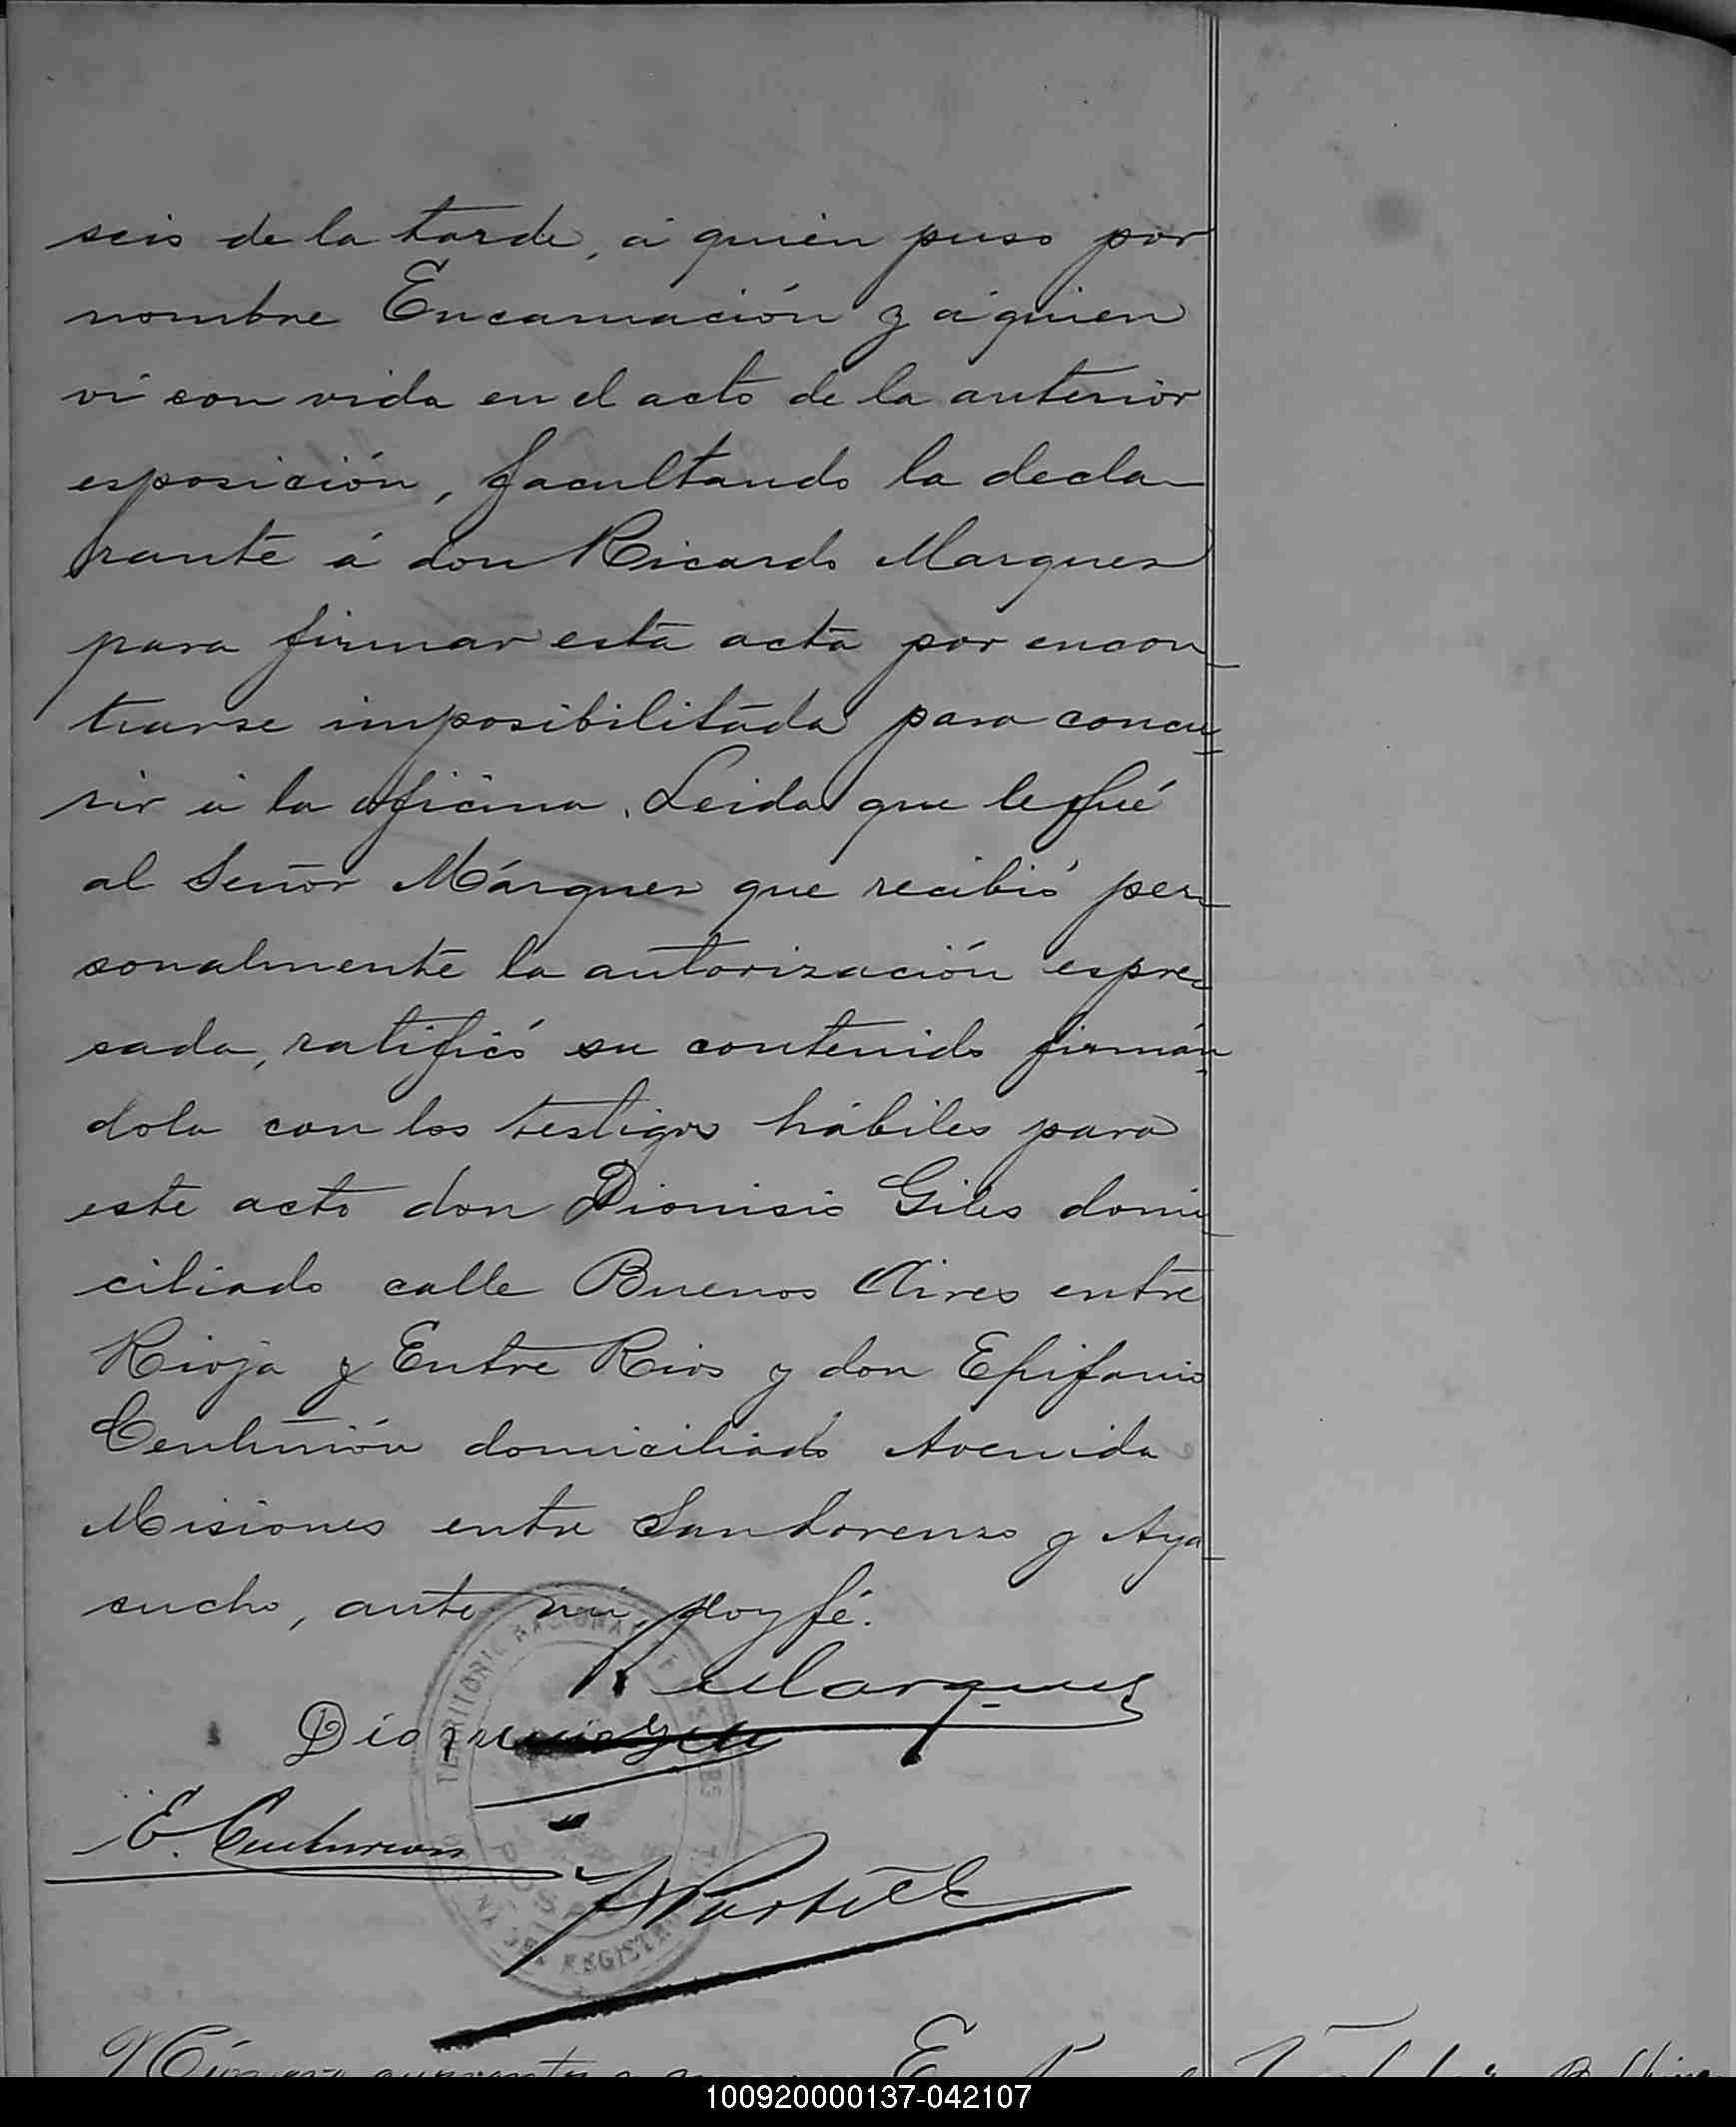 seis de la tarde, á quien puso por
nombre Encarnación y á quien
vi con vida en el acto de la anterior
esposición, facultando la decla-
rante á don Ricardo Marques
para firmar esta acta por encon-
trarse imposibilitada para concu-
rir á la oficina. Leida que le fué
al Señor Márques que recibió per-
sonalmente la autorización espre-
sada, ratificó su contenido firmán-
dola con los testigos hábiles para
este acto don Dionisio Giles domi-
ciliado calle Buenos Aires entre
Rioja y Entre Rios y don Epifanio
Centurión domiciliado Avenida
Misiones entre San Lorenzo y Aya-
cucho, ante mi, doy fé.
R Marques
Dionisio
E. Centurion
TERRITORIO NACIONAL DE MISIONES
POSADAS
DEL REGISTRO
Número cuarenta
100920000137-042107